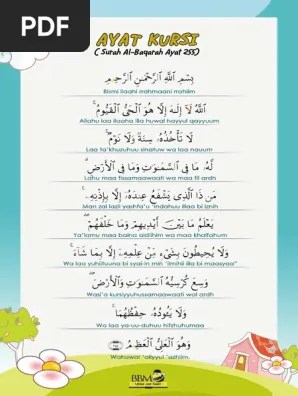 PDF
AYAT KURSI
( Surah Al-Baqarah Ayat 255)
بِسْمِ اللَّهِ الرَّحْمَٰنِ الرَّحِيمِ
Bismi llaahi rrahmaani rrahiim
اللَّهُ لَآ إِلَٰهَ إِلَّا هُوَ الْحَيُّ الْقَيُّومُ ۚ
Allahu laa ilaaha illa huwal hayyul qayyuum
لَا تَأْخُذُهُۥ سِنَةٌ وَلَا نَوْمٌ ۚ
Laa ta'khuzuhuu sinatuw wa laa nauum
لَّهُۥ مَا فِي السَّمَٰوَٰتِ وَمَا فِي الْأَرْضِ ۗ
Lahu maa fissamaawaati wa maa fil ardh
مَن ذَا الَّذِي يَشْفَعُ عِندَهُۥٓ إِلَّا بِإِذْنِهِۦ ۚ
Man zal lazii yashfa'u 'indahuu illaa bi iznih
يَعْلَمُ مَا بَيْنَ أَيْدِيهِمْ وَمَا خَلْفَهُمْ ۖ
Ya'lamu maa baina aidiihim wa maa khalfahum
وَلَا يُحِيطُونَ بِشَيْءٍ مِّنْ عِلْمِهِۦٓ إِلَّا بِمَا شَآءَ ۚ
Wa laa yuhiituuna bi syai-in min 'ilmihii illa bi maasyaa'
وَسِعَ كُرْسِيُّهُ السَّمَٰوَٰتِ وَالْأَرْضَ ۖ
Wasi'a kursiyyuhussamaawaati wal ardh
وَلَا يَئُودُهُۥ حِفْظُهُمَا ۚ
Wa laa ya-uu-duhuu hifzhuhumaa
وَهُوَ الْعَلِيُّ الْعَظِيمُ
Wahuwal 'aliyyul 'azhiim.
BBM